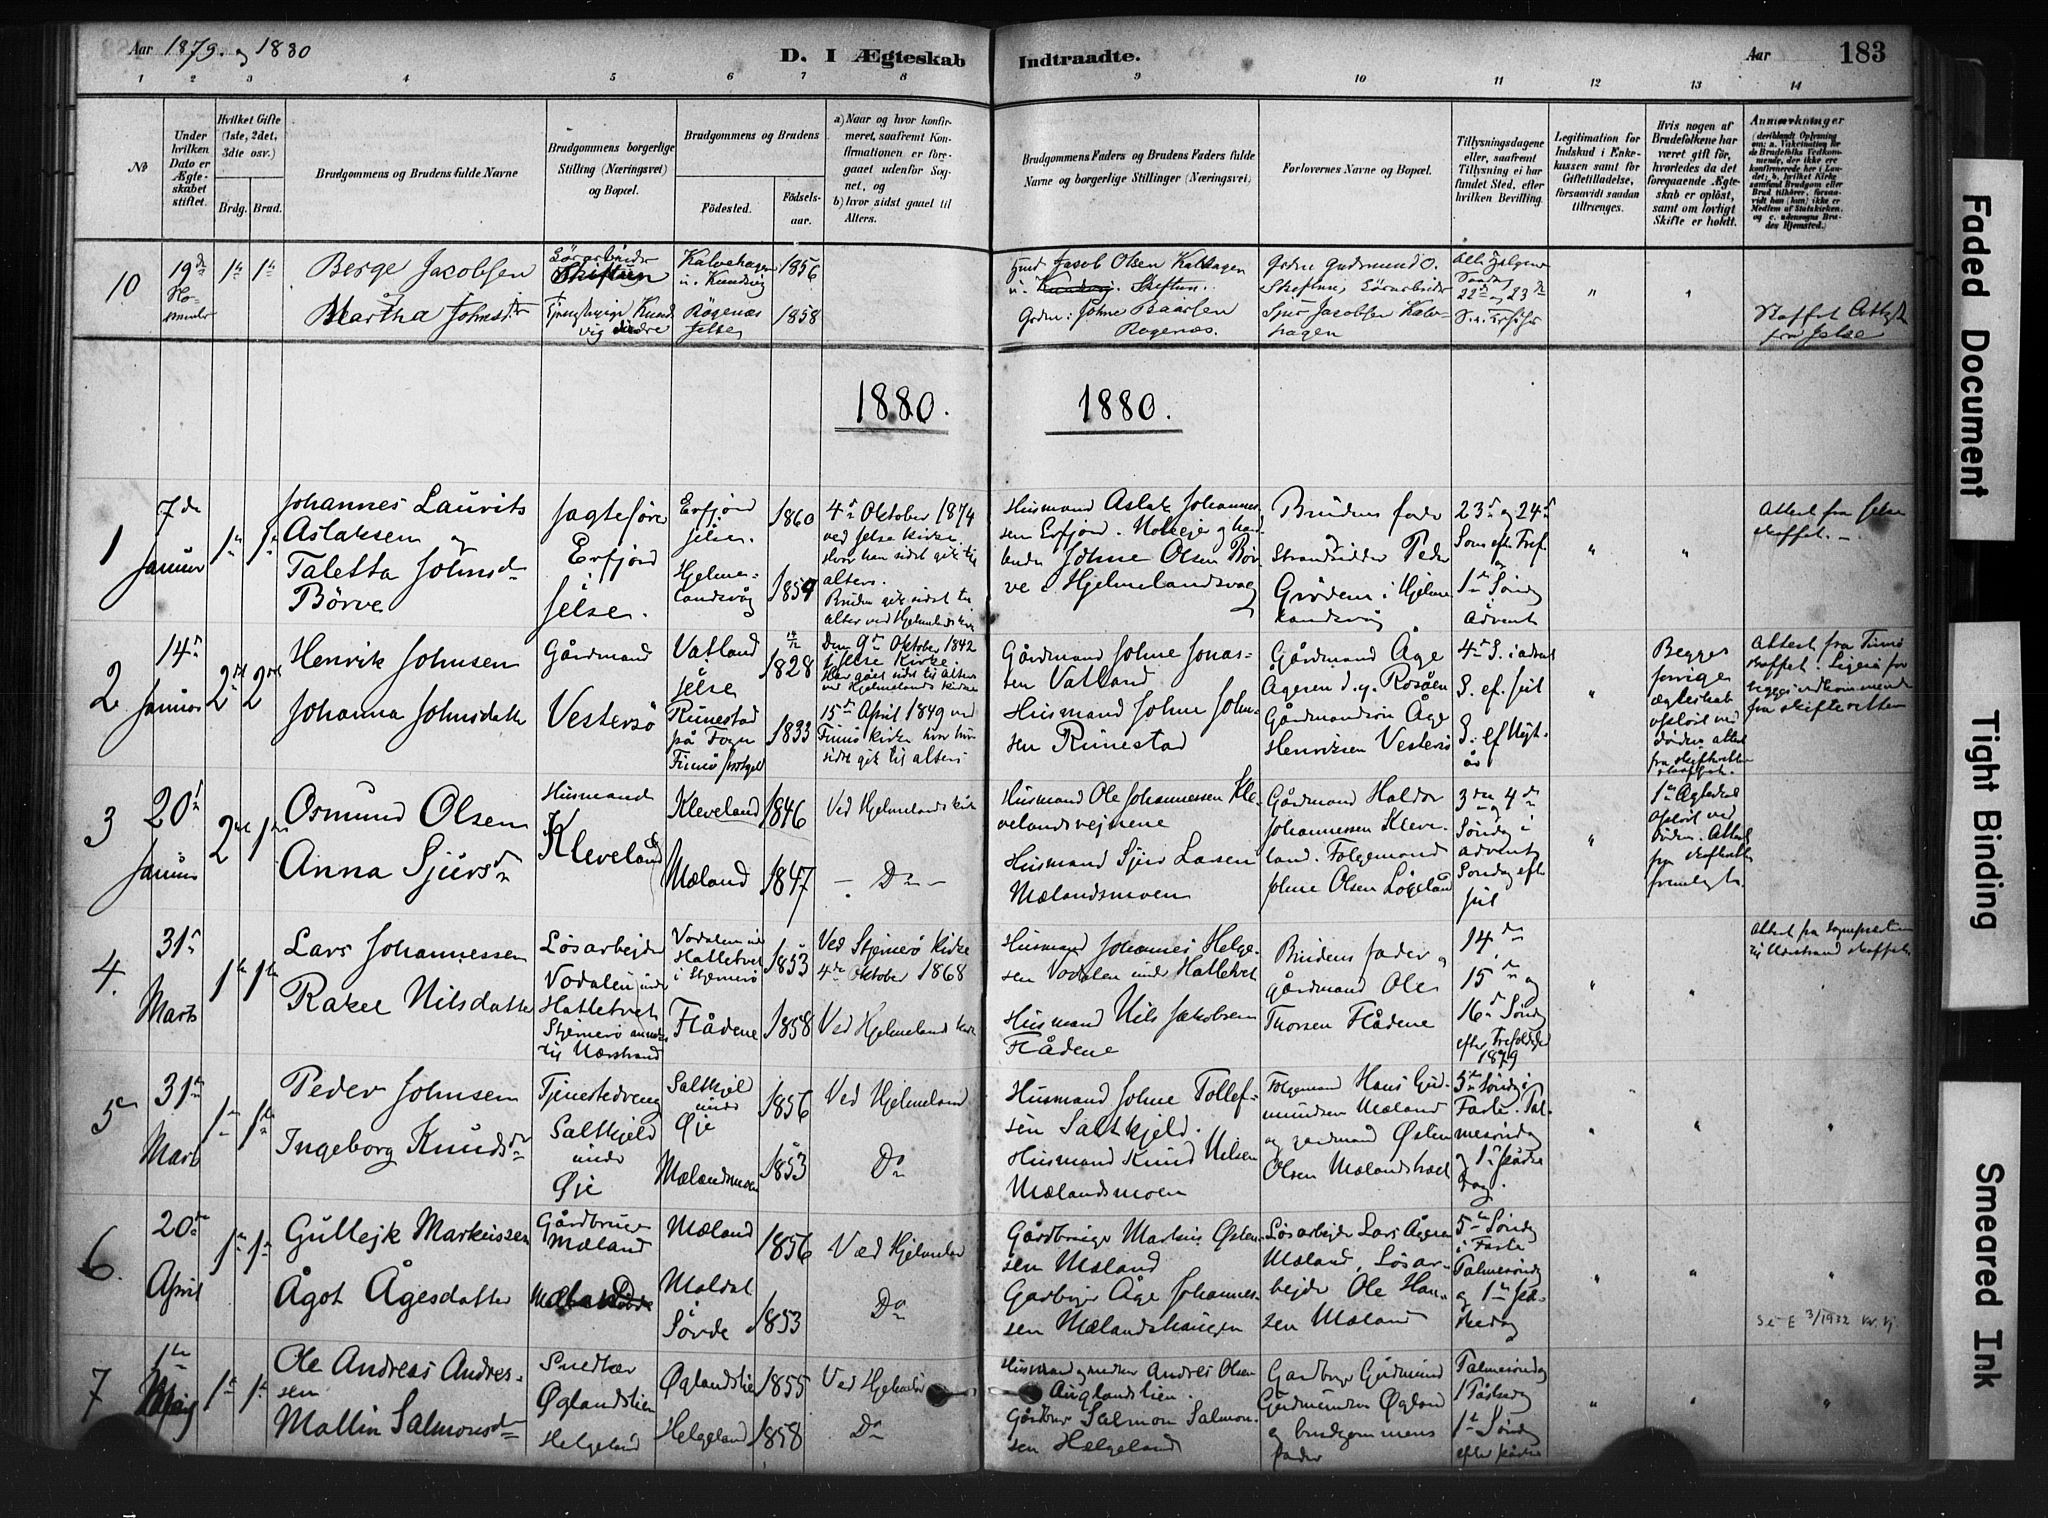 Aar 1879. og 1880
D. I Ægteskab
Indtraadte.
Aar
183
1 2 3 4 5 6 7 8 9 10 11 12 13 14
No
Under hvilken Dato er Ægte-skabet stiftet.
Hvilket Gifte (1ste, 2det, 3die osv.)
Brdg. Brud.
Brudgommens og Brudens fulde Navne
Brudgommens borgerlige Stilling (Næringsvei) og Bopæl.
Brudgommens og Brudens
Födested.
Födsels-aar.
a) Naar og hvor konfir-meret, saafremt Kon-firmationen er fore-gaaet udenfor Sog-net, og
b) hvor sidst gaaet til Alters.
Brudgommens Faders og Brudens Faders fulde Navne og borgerlige Stillinger (Næringsvei)
Forlovernes Navne og Bopæl.
Tillysningsdagene eller, saafremt Tillysning ei har fundet Sted, efter hvilken Bevilling.
Legitimation for Indskud i Enke-kassen samt for Giftetilladelse, forsaavidt saadan tiltrænges.
Hvis nogen af Brudefolkene har været gift før, hvorledes da det foregaaende Ægte-skab er oplöst, samt om lovligt Skifte er holdt.
Anmærkninger
10
19de
1ste 1ste
Berge Jacobsen
Kalvehagen
1856
Jacob Olsen
Gudmund O.
Martha Johnsdr
1858
Attest
fra Jelse
1880.
1880.
1
7de
Januar
Johannes Laurits
Aslaksen og
Taletta Johnsd
Börve
Jagtefører
Erfjord
i
Jelse.
Erfjord
Jelse.
Hjelme-
landsvåg
1860
1859
4de Oktober 1874
ved Jelse Kirke.
hvor han sidst gik til
alters.
Bruden gik sidst til
alter ved Hjelmelands kirke
Husmand Aslak Johannes-
sen Erfjord.
Johne Olsen Bör-
ve i Hjelmelandsvaag
Brudens fader
og
Strandsidder Peder
Gröden i Hjelme
landsvåg
23de og 24de
Søn eft Tref.
1ste Søndag
Advent
Attest fra Jelse
skaffet. -
2
14de
Januar
2det 2det
Henrik Johnsen
Johanna Johnsdatter
Gårdmand
Vestersö
Vatland
Jelse
Runestad
på Fogn
Finnö
1828
1833
Den 9de Oktober 1842
i Jelse Kirke.
Har gået sidst til alters
ved Hjelmelands kirke
15de April 1849 ved
Finnö kirke hvor hun
sidst gik til alters
Gårdmand Johne Jonas-
sen Vatland
Husmand Johne John-
sen Runestad
Gårdmand Åge
Ågesen d. y. Rosåen
Gårdmandsön Åge
Henriksen Vestersö
4de S. i advent
S. ef. Jul
S. ef Nyt-
år
Begges
forrige
ægteskab
opløst ved
døden attest
fra skifteretten
skaffet.
Attest fra Finnö
skaffet.
fra skifteretten
3
20de
Januar
2det 1ste
Osmund Olsen
Anna Sjursd
Husmand
Kleveland
Kleveland
Mæland
1846
1847
Ved Hjelmelands kirke
- Do -
Husmand Ole Johannessen Kle-
velandsvejnene
Husmand Sjur Larsen
Mælandsmoen
Gårdmand Haldor
Johannessen Kleve-
land. Folgemand
Johne Olsen Lögeland
3die og 4de
Søndag i
advent
Søndag eft
Jul
1ste Ægteskab
opløst ved
døden. Attest
fra skifteretten
fremlagt.
4.
31te
Marts
1ste 1ste
Lars Johannessen
Rakel Nilsdatter
Løsarbejder
Vodalen under
Hatletvet
Stjernerö
til Nærstrand
Vodalen under
Hatletvet
i Stjernerö
Flådene
1853
1858
Ved Stjernerö kirke
4de Oktober 1868
Ved Hjelmeland kirke
Husmand Johannes Helge-
sen Vodalen under Hatletvet
Husmand Nils Jakobsen
Flådene
Brudens fader og
Gårdmand Ole
Thorsen Flådene
14de
15de og
16de Søndag
efter Trefoldighed
1879
Attest fra Sognepræsten
til Nærstrand skaffet
5
31te
Marts
1ste 1ste
Peder Johnsen
Ingeborg Knudsdr
Tjenestedreng
Saltkjeld
under
Øje
Saltkjel
under
Øje
Mælandsmoen
1856
1853
Ved Hjelmeland
Do
Husmand Johne Tollef-
sen Saltkjeld.
Husmand Knud Nilsen
Mælandsmoen
Folgemand Hans Gud-
mundsen Mæland
og gardmand Østen
Olsen Mælandshael
5te Søndag i
Faste. Pal-
mesøndag
og 1ste påske
dag.
6.
20de
April
1ste 1ste
Gullejk Markussen
Ågot Ågesdatter
Gårdbruger
Mæland
Mæland
Maldal
i
Sövde
1856
1853
Ved Hjelmeland
Do
Gårdbruger Markus Østen-
sen Mæland
Gardbruger Åge Johannes-
sen Mælandshaugen
Løsarbejder Lars Ågesen
Mæland, Løsar-
bejder Ole Han-
sen Mæland
5te Søndag
i Faste
Palmesøndag
og 1ste På-
skedag
Se E 3/1932 Kr. Hj.
7
1ste
Maj
1ste 1ste
Ole Andreas Andres-
sen
Mallin Salmonsd
Snedker
Øglandslien
Helgeland
Øglandslien
Helgeland
1855
1858
Ved Hjelmeland
Do
Husmand og snedker Andres Olsen
Auglandslien.
Gårdbr Salmon Salmon-
sen Helgeland
Gardbruger Gudmund
Gudmundsen Øgland
og brudgommens
fader
Palmesøndag
1 Påskedag
1ste Søndag
efter påske
Faded Document
Tight Binding
Smeared Ink